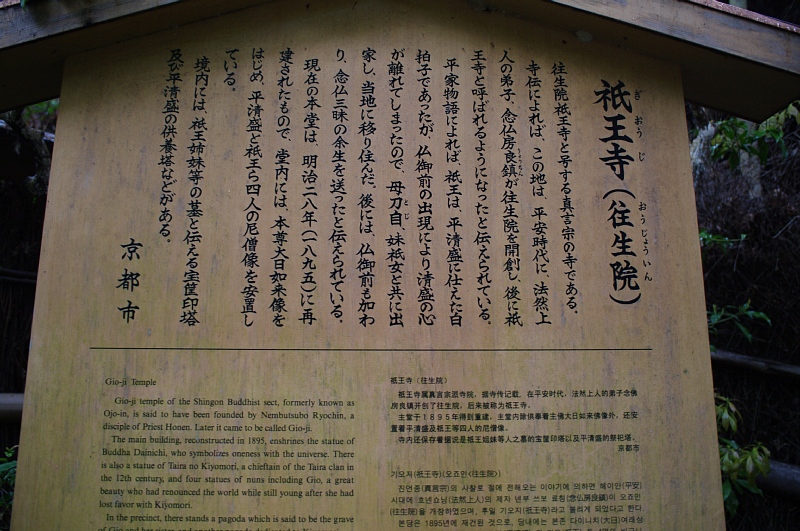 祇王寺(往生院)
ぎおうじ
おうじょういん
往生院祇王寺と号する真言宗の寺である。
寺伝によれば、この地は、平安時代に、法然上
人の弟子、念仏房良鎮が往生院を開創し、後に祇
りょうちん
王寺と呼ばれるようになったと伝えられている。
平家物語によれば、祇王は、平清盛に仕えた白
拍子であったが、仏御前の出現により清盛の心
が離れてしまったので、母刀自、妹祇女と共に出
とじ
家し、当地に移り住んだ。後には、仏御前も加わ
り、念仏三昧の余生を送ったと伝えられている。
現在の本堂は、明治二八年(一八九五)に再
建されたもので、堂内には、本尊大日如来像を
はじめ、平清盛と祇王ら四人の尼僧像を安置し
ている。
境内には、祇王姉妹等の墓と伝える宝筐印塔
及び平清盛の供養塔などがある。
京都市
Gio-ji Temple
Gio-ji temple of the Shingon Buddhist sect, formerly known as
Ojo-in, is said to have been founded by Nembutsubo Ryochin, a
disciple of Priest Honen. Later it came to be called Gio-ji.
The main building, reconstructed in 1895, enshrines the statue of
Buddha Dainichi, who symbolizes oneness with the universe. There
is also a statue of Taira no Kiyomori, a chieftain of the Taira clan in
the 12th century, and four statues of nuns including Gio, a great
beauty who had renounced the world while still young after she had
lost favor with Kiyomori.
In the precinct, there stands a pagoda which is said to be the grave
祇王寺(往生院)
祇王寺属真言宗派寺院,据寺传记载,在平安时代,法然上人的弟子念佛
房良镇开创了往生院,后来被称为祇王寺。
主堂于1895年得到重建,主堂内除供奉着主佛大日如来佛像外,还安
置着平清盛及祇王等四人的尼僧像。
寺内还保存着据说是祇王姐妹等人之墓的宝箧印塔以及平清盛的祭祀塔。
京都市
기오지(祇王寺)(오죠인<往生院>)
진언종(真言宗)의 사찰로 절에 전해오는 이야기에 의하면 헤이안(平安)
시대에 호넨쇼닝(法然上人)의 제자 넨부쓰보 료칭(念仏房良鎮)이 오죠인
(往生院)을 개창하였으며, 후일 기오지(祇王寺)라고 불리게 되었다고 한다.
본당은 1895년에 재건된 것으로, 당내에는 본존 다이니치(大日)여래상